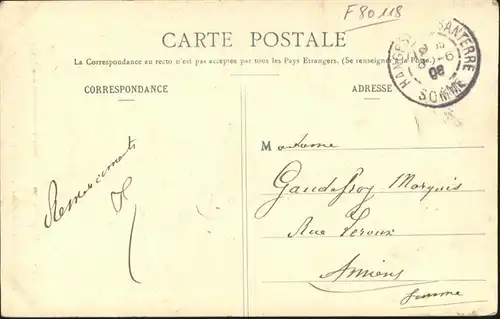 F80118
CARTE POSTALE
La Correspondance au recto n'est pas acceptée par tous les Pays Etrangers. (Se renseigner à la Poste.)
CORRESPONDANCE
ADRESSE
HANGEST SANTERRE
08
SOMME
Remerciements
Madame
Gaudefroy Marquis
Rue
Amiens
Somme